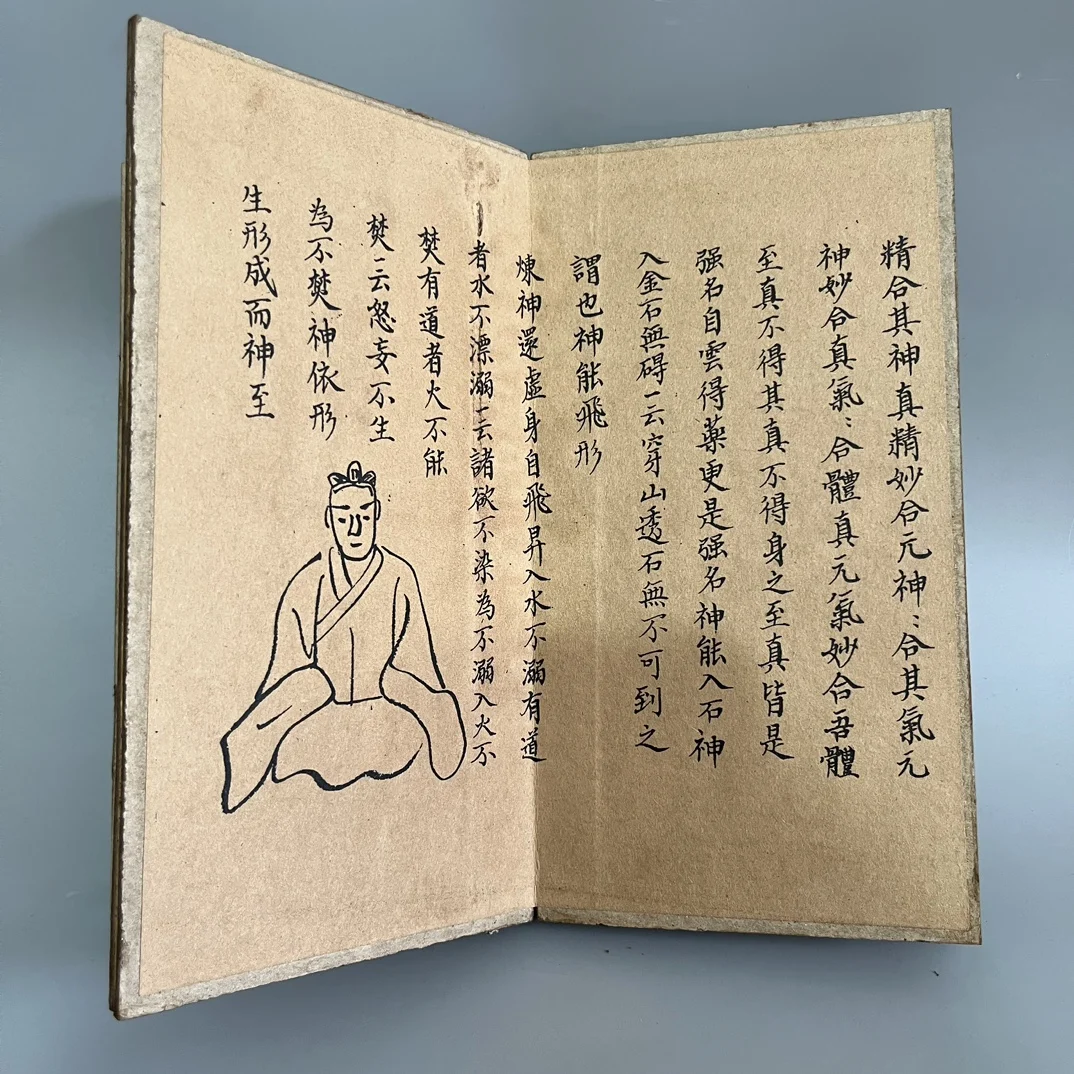 精合其神真精妙合元神：合其氣元
神妙合真氣：合體真元氣妙合吾體
至真不得其真不得身之至真皆是
强名自雲得藥更是强名神能入石神
入金石無碍一云穿山透石無不可到之
謂也神能飛形
煉神還虛身自飛昇入水不溺有道
者水不漂溺一云諸欲不染為不溺入火不
焚有道者火不能
焚一云怒妄不生
為不焚神依形
生形成而神至